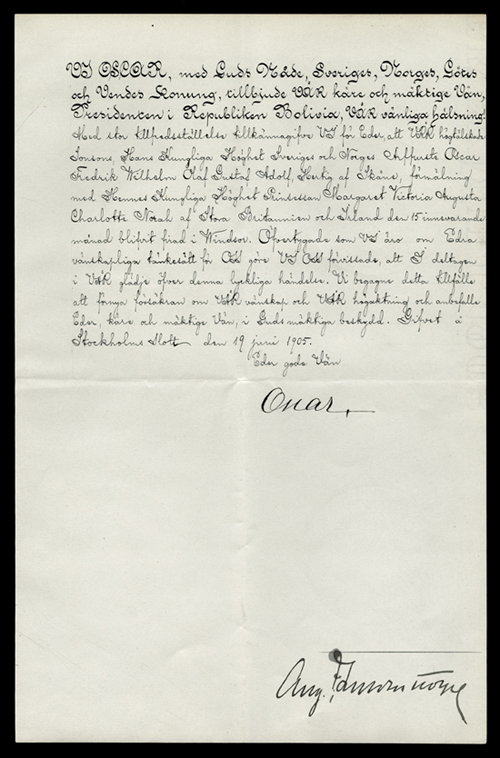 VI OSCAR, med Guds Nåde, Sveriges, Norges, Götes
och Vendes Konung, tillbjude VÅR käre och mäktige Vän,
Presidenten i Republiken Bolivia, VÅR vänliga hälsning!
Med stor tillfredsställelse tillkännagifve VI för Eder, att VÅR högtälskade
Sonsons, Hans Kungliga Höghet Sveriges och Norges Arffurste Oscar
Fredrik Wilhelm Olaf Gustaf Adolf, Hertig af Skåne, förmälning
med Hennes Kungliga Höghet Prinsessan Margaret Victoria Augusta
Charlotte Norah af Stora Britannien och Irland den 15 innevarande
månad blifvit firad i Windsor. Öfvertygade som VI äro om Edra
vänskapliga tänkesätt för OSS göre VI OSS förvissade, att I deltagen
i VÅR glädje öfver denna lyckliga händelse. Vi begagne detta tillfälle
att förnya försäkran om VÅR vänskap och VÅR högaktning och anbefalle
Eder, käre och mäktige Vän, i Guds mäktiga beskydd. Gifvet å
Stockholms Slott den 19 juni 1905.
Eder gode Vän
Oscar.
Aug.